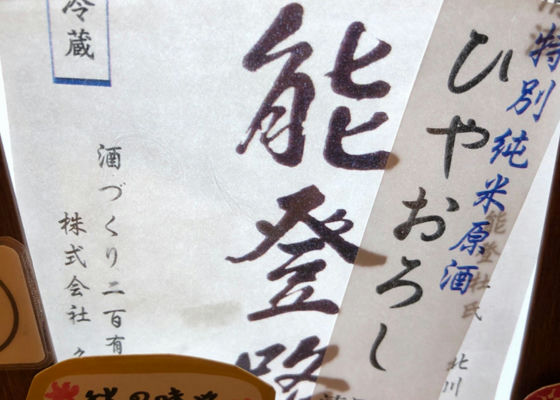 特別純米原酒
ひやおろし
能登杜氏
北川
能登路
酒づくり二百有
株式会社
冷蔵